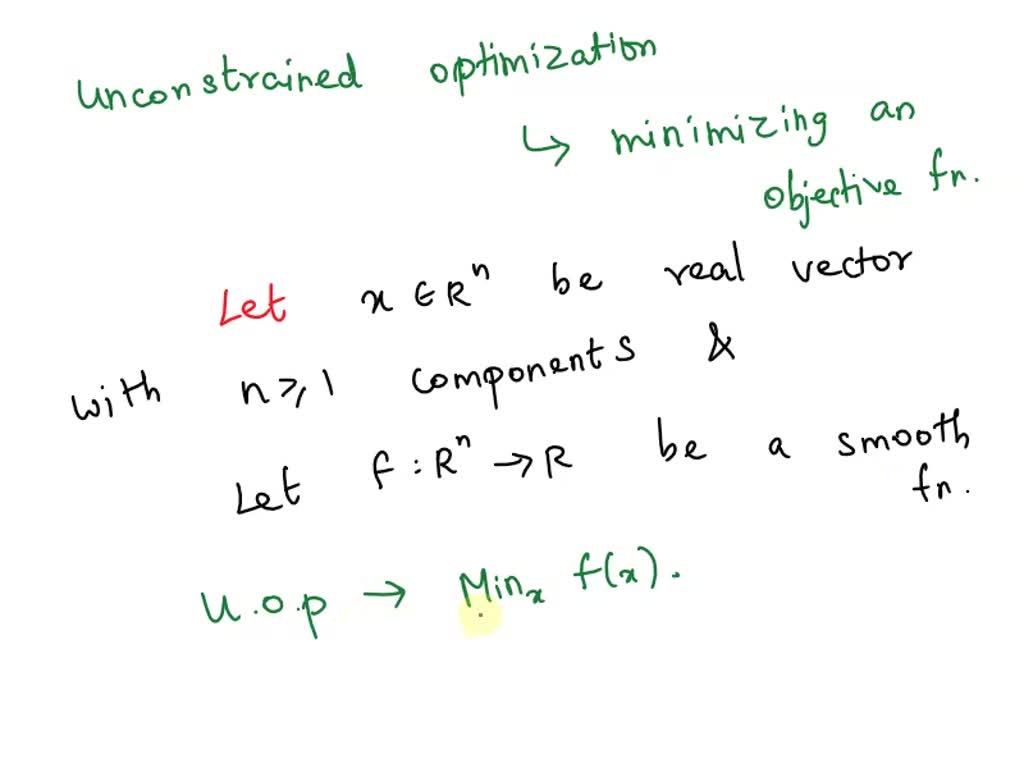 unconstrained optimization
↳ minimizing an
objective fn.
Let x ∈ Rⁿ be real vector
with n ⩾ 1 components &
Let f : Rⁿ → R be a smooth
fn.
U.O.P → Minₓ f(x).